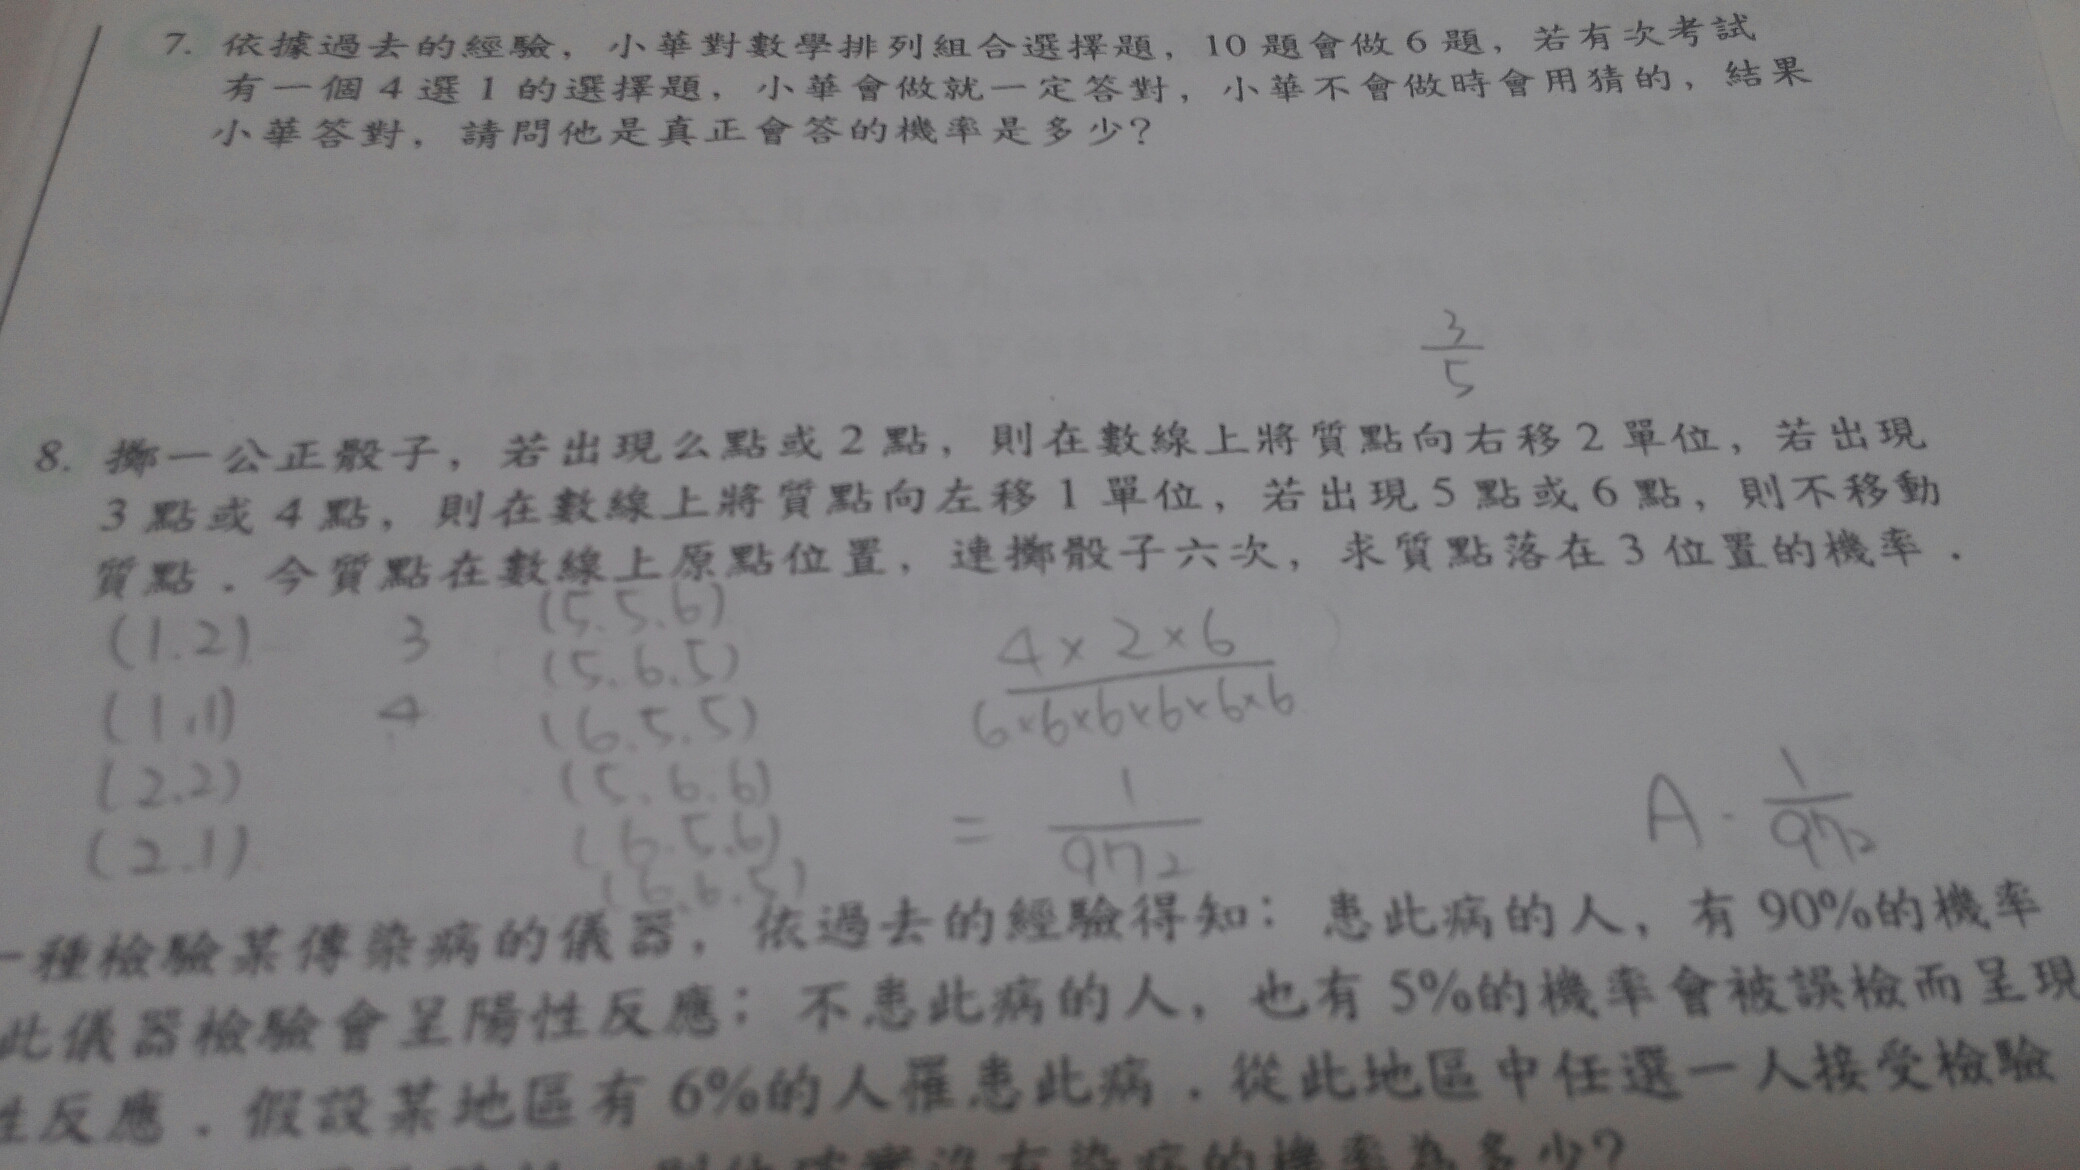 7. 依據過去的經驗，小華對數學排列組合選擇題，10 題會做 6 題，若有次考試
有一個 4 選 1 的選擇題，小華會做就一定答對，小華不會做時會用猜的，結果
小華答對，請問他是真正會答的機率是多少？
3
5
8. 擲一公正骰子，若出現么點或 2 點，則在數線上將質點向右移 2 單位，若出現
3 點或 4 點，則在數線上將質點向左移 1 單位，若出現 5 點或 6 點，則不移動
質點．今質點在數線上原點位置，連擲骰子六次，求質點落在 3 位置的機率．
(1.2) 3 (5.5.6) 4×2×6
(1.1) 4 (5.6.5) 6×6×6×6×6×6
(2.2) (6.5.5) = 1
(2.1) (5.6.6) 972
(6.5.6) A. 1
(6.6.5) 972
一種檢驗某傳染病的儀器，依過去的經驗得知：患此病的人，有 90%的機率
此儀器檢驗會呈陽性反應；不患此病的人，也有 5%的機率會被誤檢而呈現
性反應．假設某地區有 6%的人罹患此病．從此地區中任選一人接受檢驗
沒有染病的機率為多少？